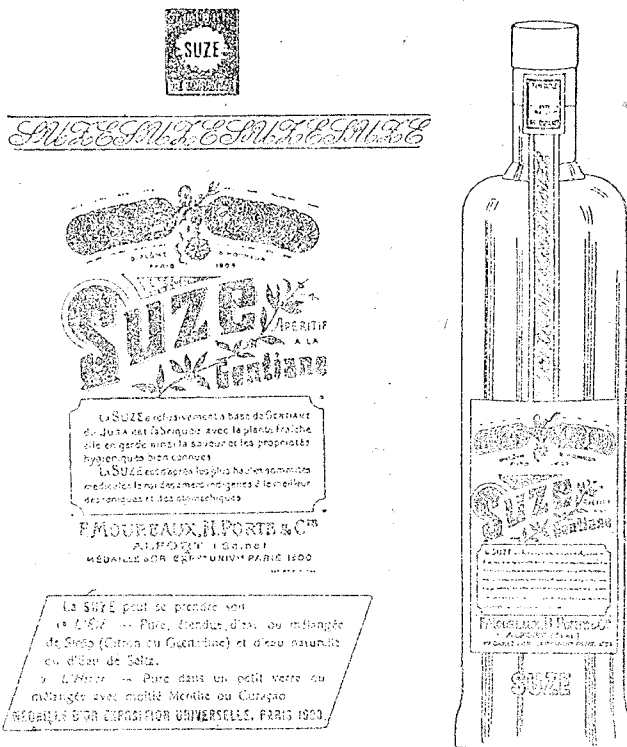 SUZE
SUZESUZESUZESUZE
DIPLÔME D'HONNEUR
PARIS
SUZE
APÉRITIF
A LA
Gentiane
La SUZE exclusivement à base de GENTIANE
du JURA est fabriquée avec la plante fraîche
elle en garde ainsi la saveur et les propriétés
hygiéniques bien connues
La SUZE est d'après les plus hautes sommités
médicales le roi des amers indigènes & le meilleur
des toniques et des stomachiques
F. MOUREAUX, H. PORTE & Cie
ALFORT (Seine)
MÉDAILLE D'OR EXP ON UNIV LLE PARIS 1900
La SUZE peut se prendre soit
L'Été — Pure, étendue d'eau ou mélangée
de Sirop (Citron ou Grenadine) et d'eau naturelle
ou d'Eau de Seltz.
L'Hiver — Pure dans un petit verre ou
mélangée avec moitié Menthe ou Curaçao
MÉDAILLE D'OR EXPOSITION UNIVERSELLE, PARIS 1900.
SUZE
APÉRITIF
Gentiane
F. MOUREAUX, H. PORTE & Cie
ALFORT
SUZE